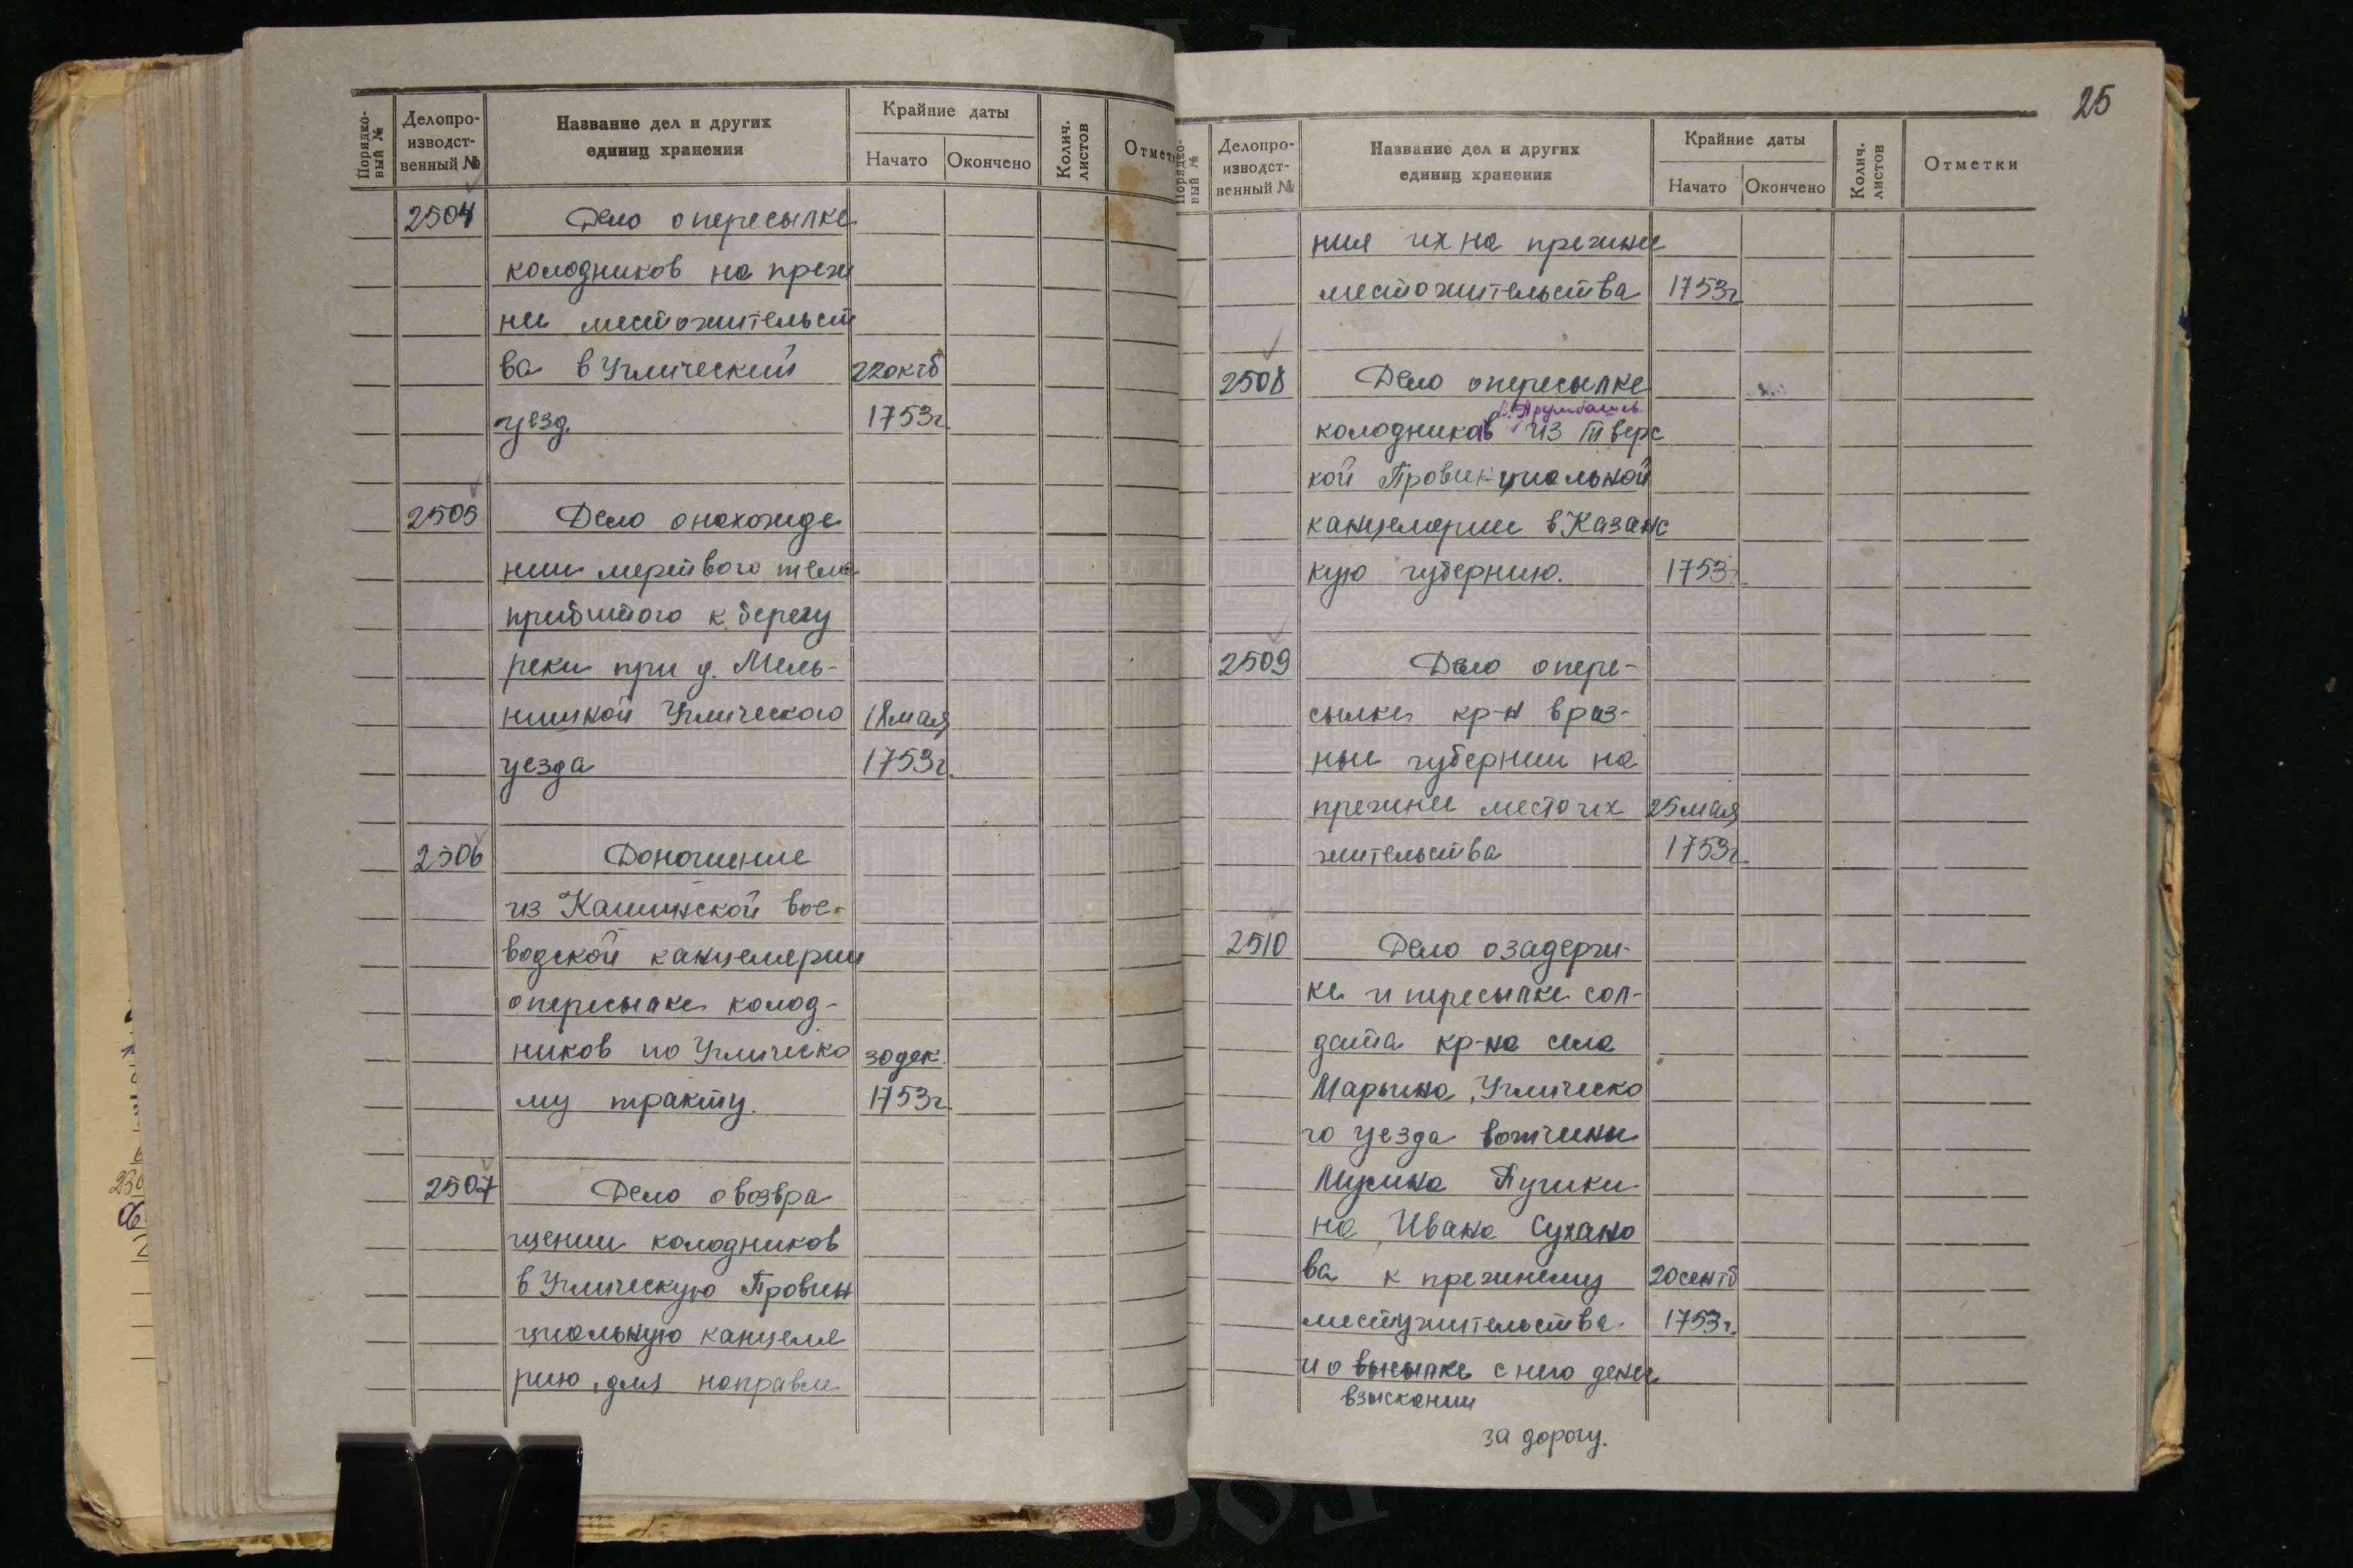 Порядко-
вый №
Делопро-
изводст-
венный №
Название дел и других
единиц хранения
Крайние даты
Начато
Окончено
Колич.
листов
Отметк
2504
Дело о пересылке
колодников на преж
ни местожительст
ва в Угличский
22 октб
уезд.
1753г
2505
Дело о нахожде
нии мертвого тела
прибитого к берегу
реки при д. Мель-
ничной Угличского
18 мая
уезда
1753г.
2506
Доношение
из Кашинской вое-
водской канцелярии
о пересылке колод-
ников по Угличско
30 дек.
му тракту.
1753г
2507
Дело о возвра
щении колодников
в Угличскую Провин
циальную канцеля
рию, для направле
25
Порядко-
вый №
Делопро-
изводст-
венный №
Название дел и других
единиц хранения
Крайние даты
Начато
Окончено
Колич.
листов
Отметки
ния их на прежние
местожительства
1753г
2508
Дело о пересылке
колодников из Тверс
кой Провинциальной
канцелярии в Казанс
кую губернию.
1753
2509
Дело о пере-
сылке кр-н в раз-
ные губернии на
прежние место их
25 мая
жительства
1753г.
2510
Дело о задерж-
ке и пересылке сол-
дата кр-на села
Марьина, Угличско
го уезда вотчины
Мусина Пушки
на, Ивана Сухано
ва к прежнему
20 сентб
местужительства.
1753г.
и о высылке с него денег
взыскании
за дорогу.